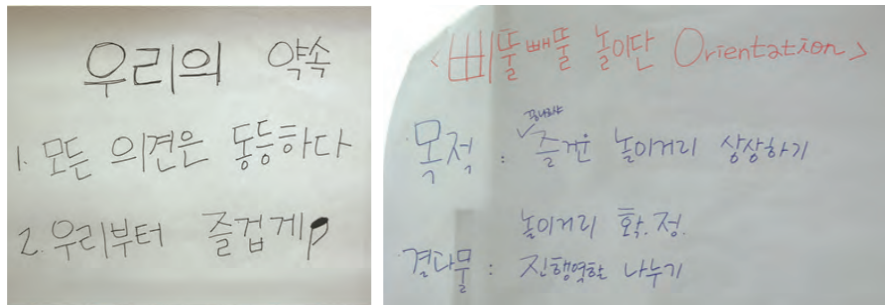 우리의 약속
1. 모든 의견은 동등하다
2. 우리부터 즐겁게
<삐뚤빼뚤 놀이단 Orientation>
목적 : 즐거운 놀이거리 상상하기
놀이거리 확.정.
결과물 : 진행역할 나누기